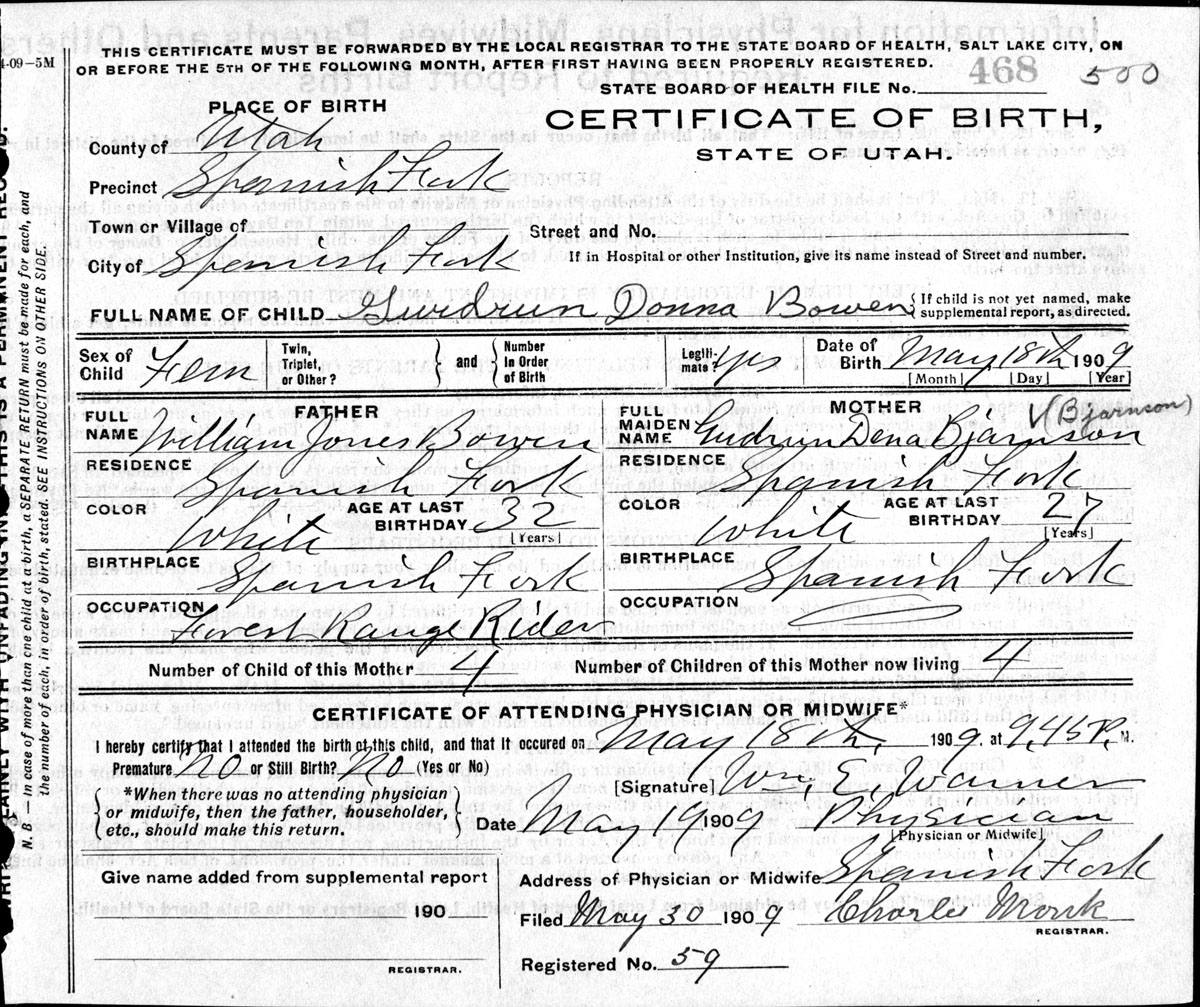 4-09-5M
THIS CERTIFICATE MUST BE FORWARDED BY THE LOCAL REGISTRAR TO THE STATE BOARD OF HEALTH, SALT LAKE CITY, ON
OR BEFORE THE 5TH OF THE FOLLOWING MONTH, AFTER FIRST HAVING BEEN PROPERLY REGISTERED.
468 500
STATE BOARD OF HEALTH FILE No.
PLACE OF BIRTH
CERTIFICATE OF BIRTH,
STATE OF UTAH.
County of Utah
Precinct Spanish Fork
Town or Village of
Street and No.
City of Spanish Fork
If in Hospital or other Institution, give its name instead of Street and number.
FULL NAME OF CHILD Gwidrun Donna Bowen { If child is not yet named, make supplemental report, as directed.
Sex of Child Fem
Twin, Triplet, or Other? } and { Number in Order of Birth
Legitimate? yes
Date of Birth May 18th 1909
[Month] [Day] [Year]
FATHER
FULL NAME William Jones Bowen
RESIDENCE Spanish Fork
COLOR White
AGE AT LAST BIRTHDAY 32
[Years]
BIRTHPLACE Spanish Fork
OCCUPATION Forest Range Rider
MOTHER
FULL MAIDEN NAME Gudrun Dena Bjarnson V (Bjarnson)
RESIDENCE Spanish Fork
COLOR White
AGE AT LAST BIRTHDAY 27
[Years]
BIRTHPLACE Spanish Fork
OCCUPATION
Number of Child of this Mother 4
Number of Children of this Mother now living 4
CERTIFICATE OF ATTENDING PHYSICIAN OR MIDWIFE*
I hereby certify that I attended the birth of this child, and that it occured on May 18th, 1909. at 9,45 P. M.
Premature? No or Still Birth? No (Yes or No)
*When there was no attending physician
or midwife, then the father, householder,
etc., should make this return.
[Signature] Wm, E, Warner
Date May 19 1909
Physician
[Physician or Midwife]
Address of Physician or Midwife Spanish Fork
Give name added from supplemental report
190
REGISTRAR.
Filed May 30 1909 Charles Monk
REGISTRAR.
Registered No. 59
N. B. — In case of more than one child at a birth, a SEPARATE RETURN must be made for each, and
the number of each, in order of birth, stated. SEE INSTRUCTIONS ON OTHER SIDE.
UNFADING THIS IS A PERMANENT